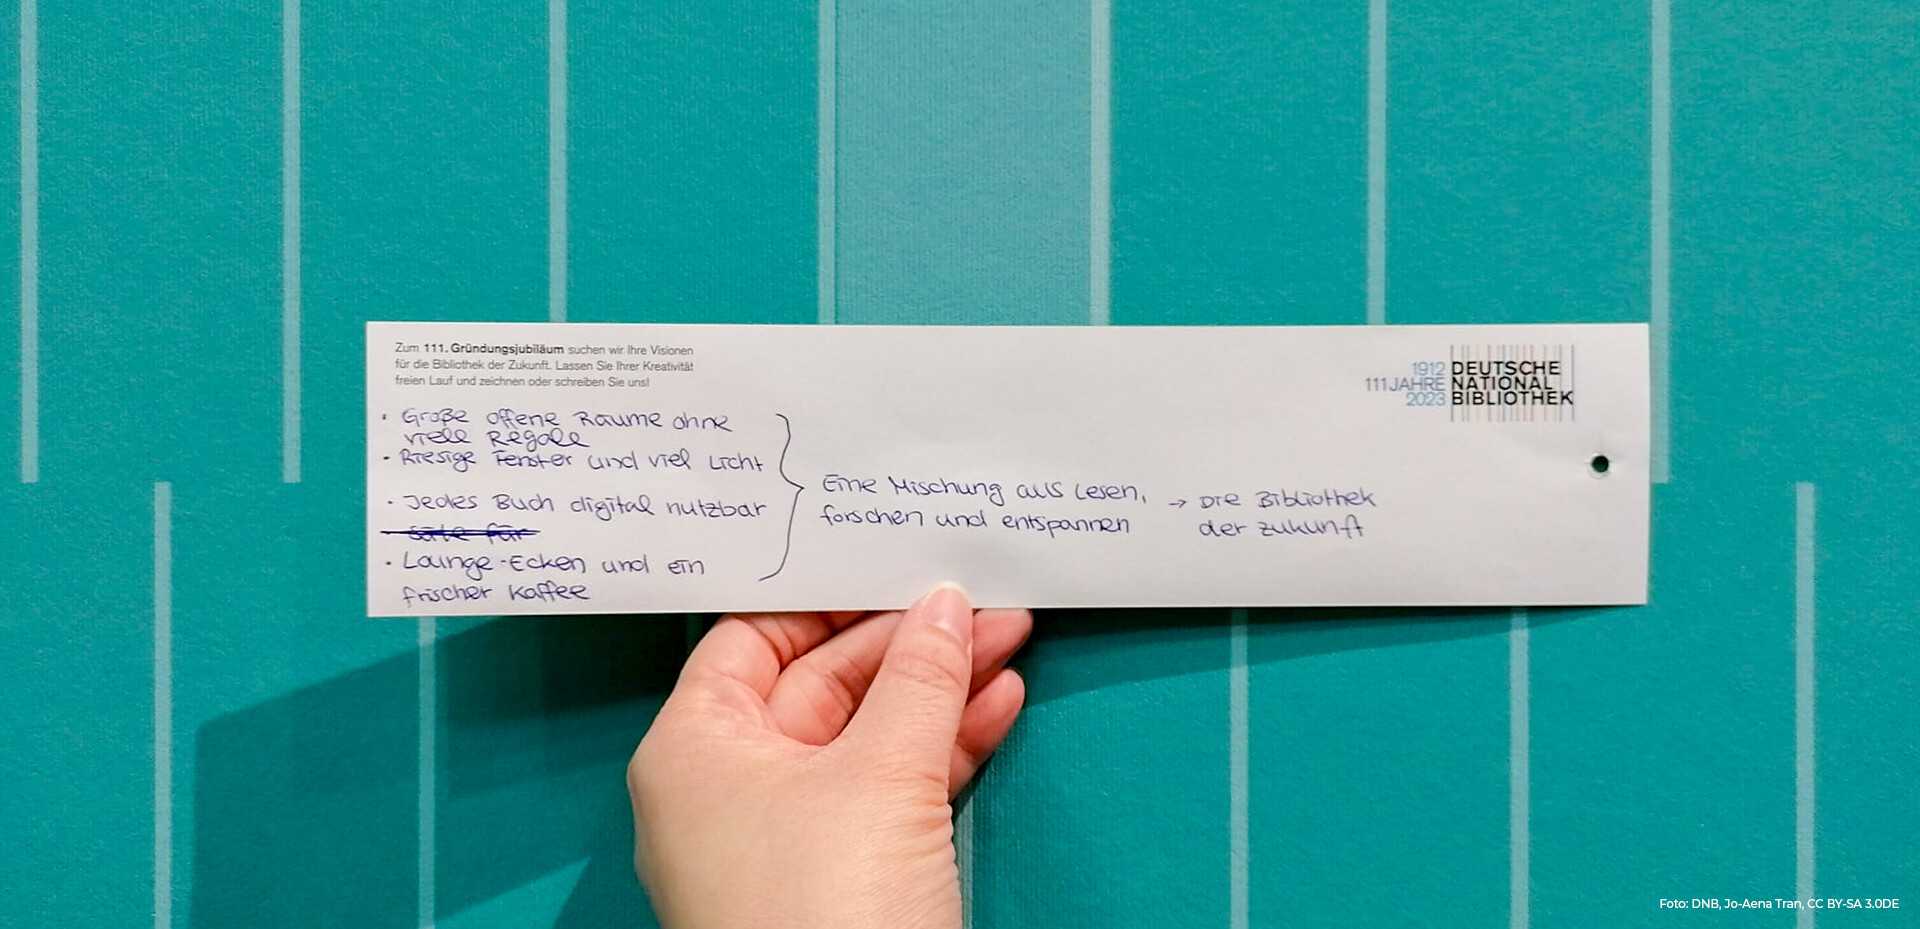 Zum 111. Gründungsjubiläum suchen wir Ihre Visionen
für die Bibliothek der Zukunft. Lassen Sie Ihrer Kreativität
freien Lauf und zeichnen oder schreiben Sie uns!
1912
111 JAHRE
2023
DEUTSCHE
NATIONAL
BIBLIOTHEK
· Große offene Räume ohne
viele Regale
· Riesige Fenster und viel Licht
· Jedes Buch digital nutzbar
· Lounge-Ecken und ein
frischer Kaffee
Eine Mischung aus Lesen,
forschen und entspannen
→ Die Bibliothek
der Zukunft
Foto: DNB, Jo-Aena Tran, CC BY-SA 3.0DE